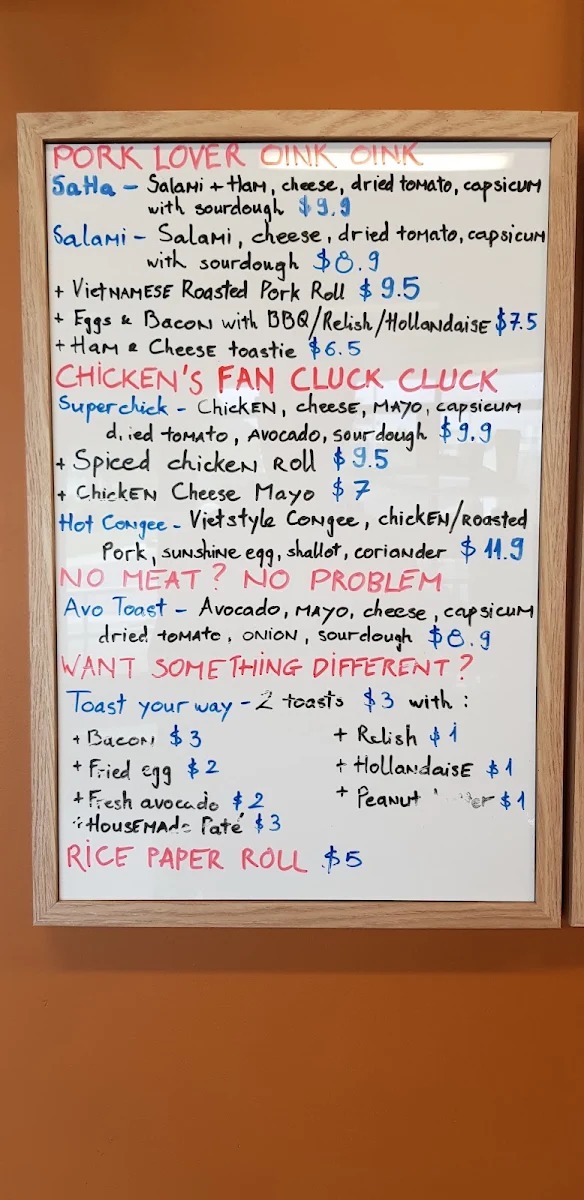 PORK LOVER OINK OINK
SaHa - Salami + Ham, cheese, dried tomato, capsicum
with sourdough $9.9
Salami - Salami, cheese, dried tomato, capsicum
with sourdough $8.9
+ Vietnamese Roasted Pork Roll $9.5
+ Eggs & Bacon with BBQ/Relish/Hollandaise $7.5
+ Ham & Cheese toastie $6.5
CHICKEN'S FAN CLUCK CLUCK
Superchick - Chicken, cheese, Mayo, capsicum
dried tomato, Avocado, sourdough $9.9
+ Spiced chicken Roll $9.5
+ Chicken Cheese Mayo $7
Hot Congee - Vietstyle Congee, chicken/roasted
Pork, sunshine egg, shallot, coriander $11.9
NO MEAT? NO PROBLEM
Avo Toast - Avocado, Mayo, cheese, capsicum
dried tomato, onion, sourdough $8.9
WANT SOMETHING DIFFERENT?
Toast your way - 2 toasts $3 with :
+ Bacon $3
+ Fried egg $2
+ Fresh avocado $2
+ Housemade Paté $3
+ Relish $1
+ Hollandaise $1
+ Peanut $1
RICE PAPER ROLL $5